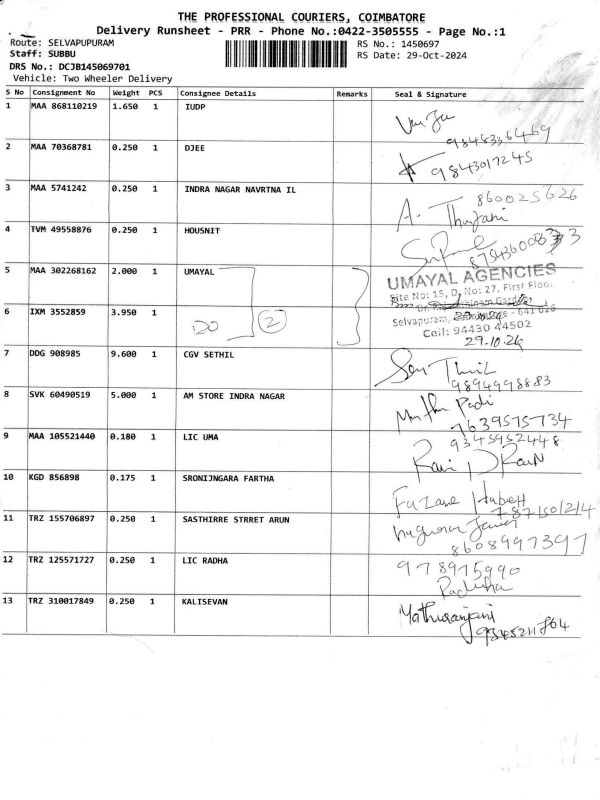 THE PROFESSIONAL COURIERS, COIMBATORE
Delivery Runsheet - PRR - Phone No.:0422-3505555 - Page No.:1
Route: SELVAPUPURAM
Staff: SUBBU
DRS No.: DCJB145069701
Vehicle: Two Wheeler Delivery
RS No.: 1450697
RS Date: 29-Oct-2024
S No Consignment No Weight PCS Consignee Details Remarks Seal & Signature
1 MAA 868110219 1.650 1 IUDP
2 MAA 70368781 0.250 1 DJEE
9843017245
3 MAA 5741242 0.250 1 INDRA NAGAR NAVRTNA IL
860025626
A. Thulani
4 TVM 49558876 0.250 1 HOUSNIT
5 MAA 302268162 2.000 1 UMAYAL
UMAYAL AGENCIES
Site No: 15, D, No: 27, First Floor,
6 IXM 3552859 3.950 1
DO 2
Selvapuram, - 641 026
Cell: 94430 44502
29.10.24
7 DDG 908985 9.600 1 CGV SETHIL
Sen Thil
9894998883
8 SVK 60490519 5.000 1 AM STORE INDRA NAGAR
7639575734
9 MAA 105521440 0.180 1 LIC UMA
9345952448
10 KGD 856898 0.175 1 SRONIJNGARA FARTHA
11 TRZ 155706897 0.250 1 SASTHIRRE STRRET ARUN
8608997397
12 TRZ 125571727 0.250 1 LIC RADHA
978975990
13 TRZ 310017849 0.250 1 KALISEVAN
Mathuranjani